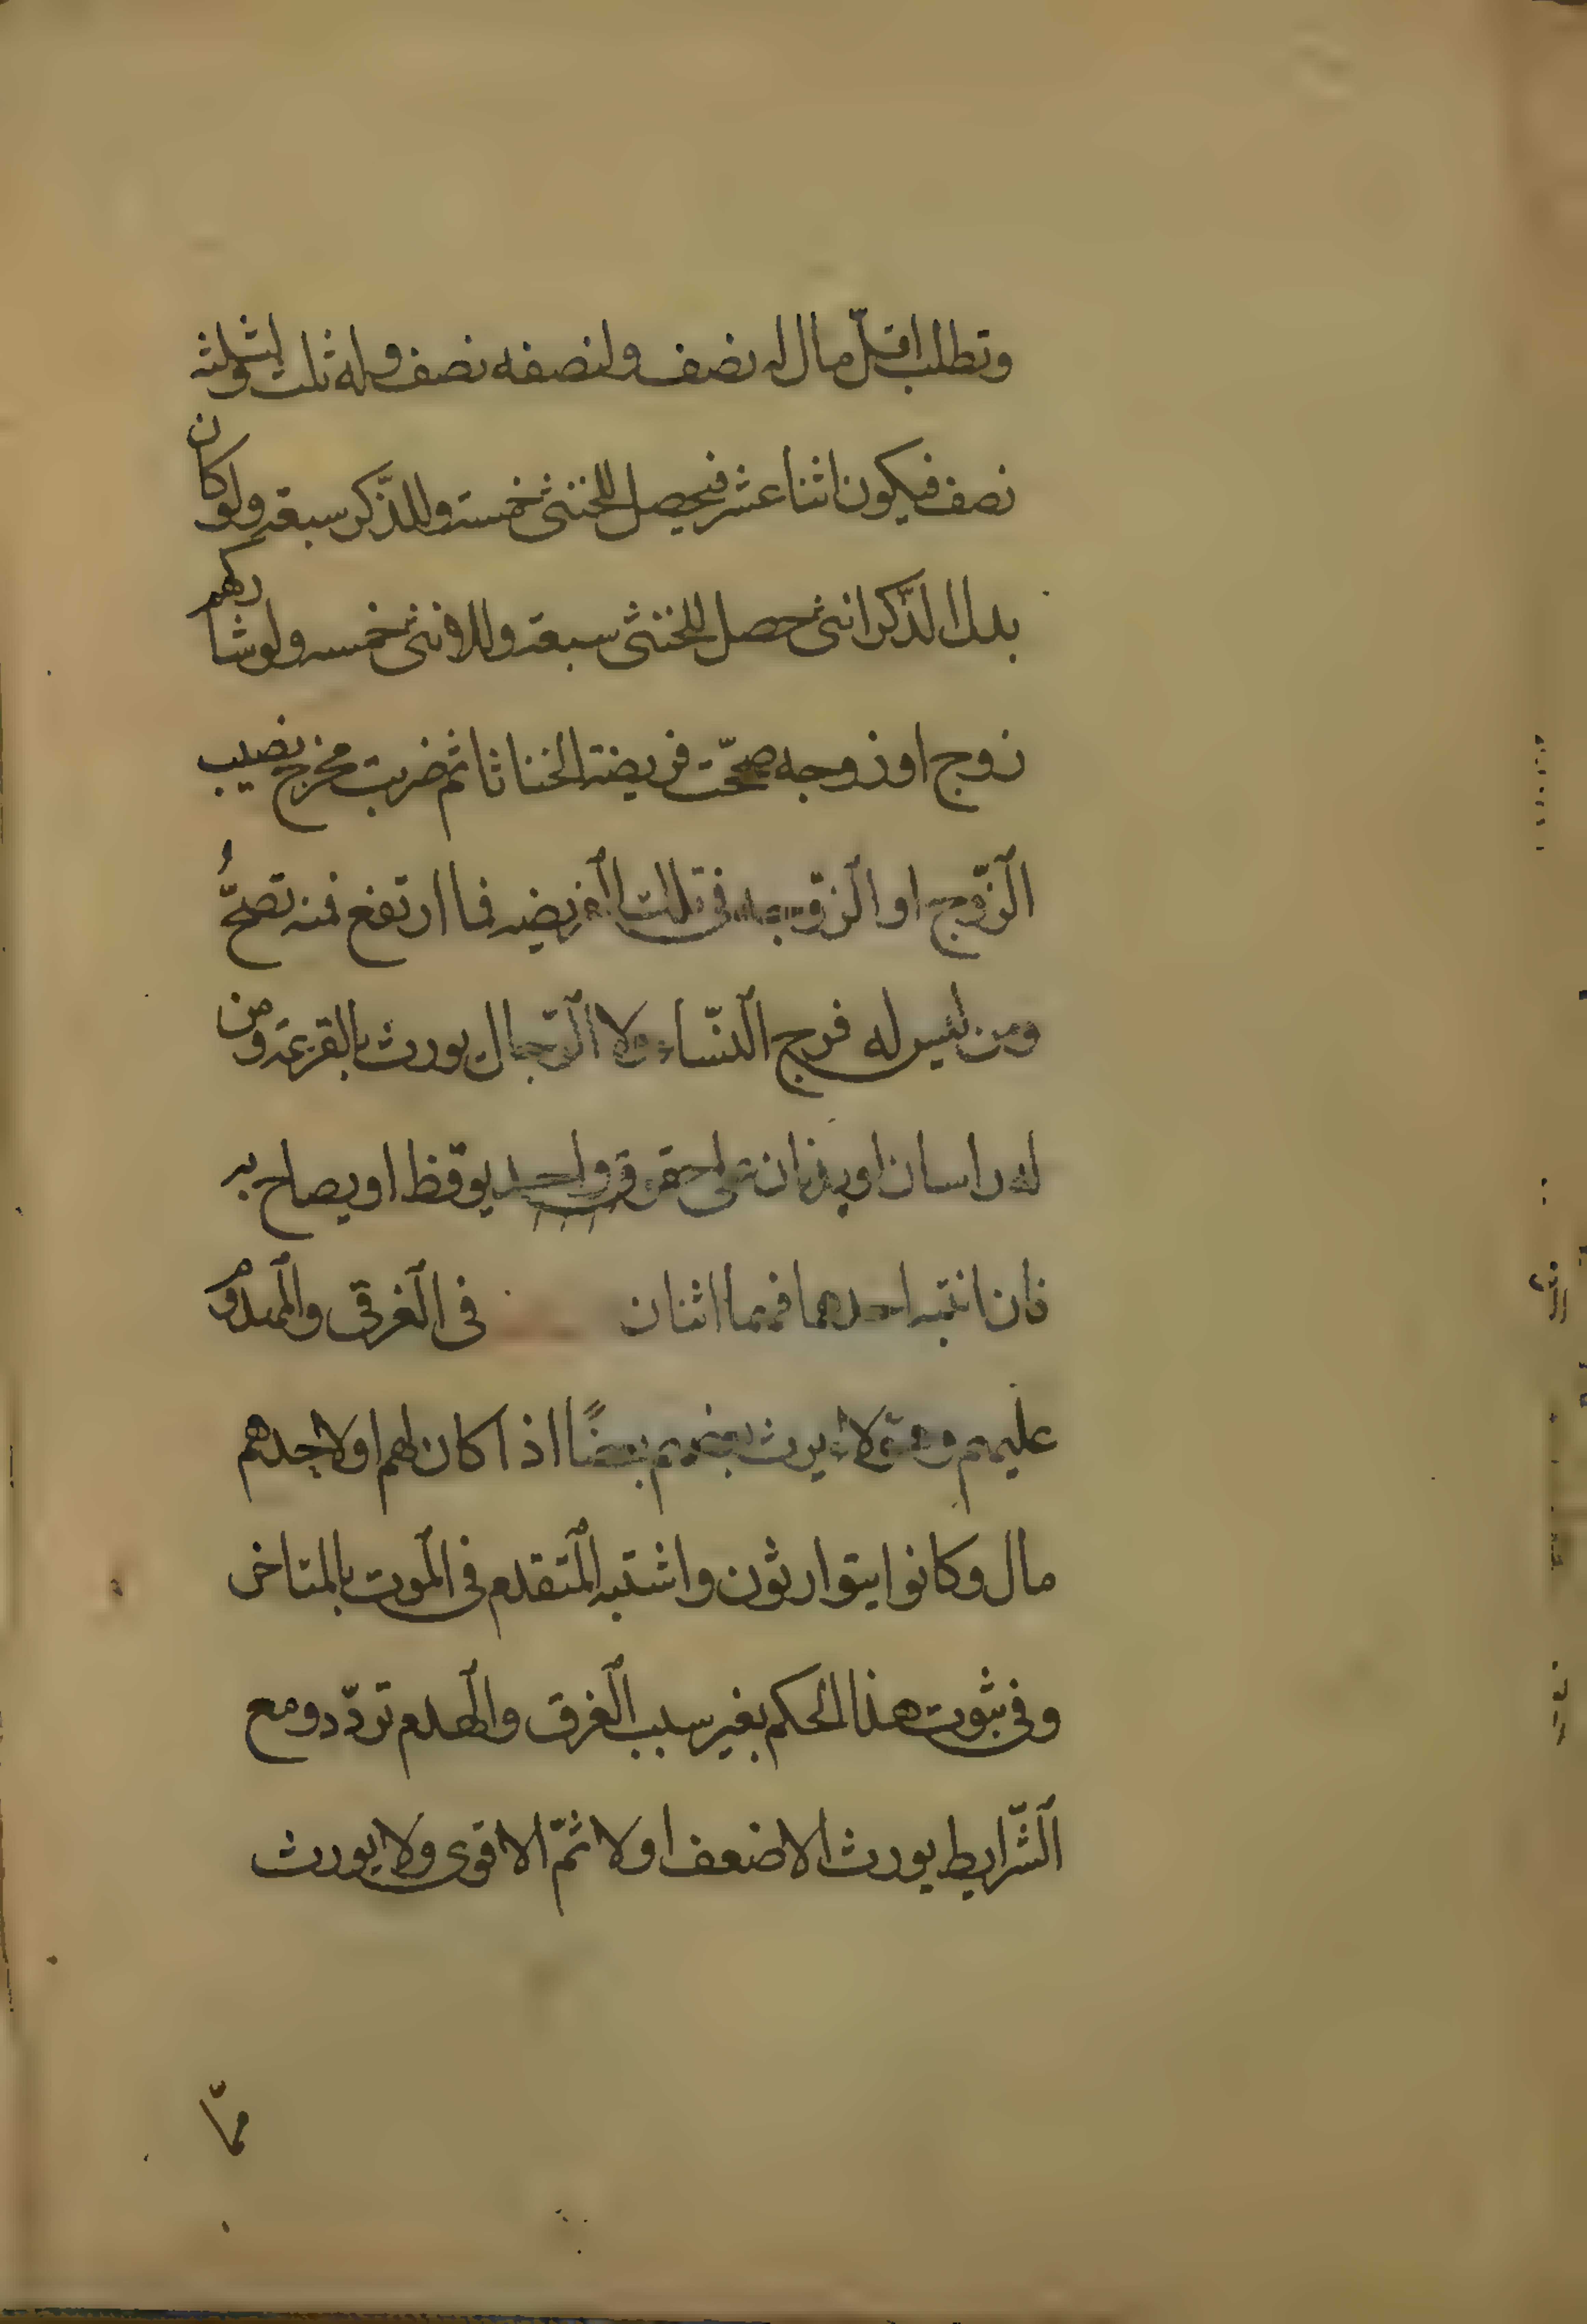 وتطلب اقلّ مال له نصف ولنصفه نصف وله ثلث ولثلثه
نصف فيكون اثنا عشر فيحصل للخنثى خمسة وللذّكر سبعة ولو كان
بدل الذّكر انثى حصل للخنثى سبعة وللانثى خمسه ولو شاركهم
زوج او زوجه صحّحت فريضة الخناثا ثم ضربت مخرج نصيب
الزّوج او الزّوجه فى تلك الفريضه فما ارتفع فمنه تصحُّ
ومن ليس له فرج النّساء ولا الرّجال يورث بالقرعة ومن
له راسان او بدنان على حقو واحد يوقظ او يصاح به
فان انتبه احدهما فهما اثنان فى الغرقى والمهدوم
عليهم وهؤلاء يرث بعضهم بعضًا اذا كان لهم او لاحدهم
مال وكانوا يتوارثون واشتبه المتقدم فى الموت بالمتاخر
وفى ثبوت هذا الحكم بغير سبب الغرق والهدم تردّد ومع
الشّرايط يورث الاضعف اولا ثمّ الاقوى ولا يورث
ممّا